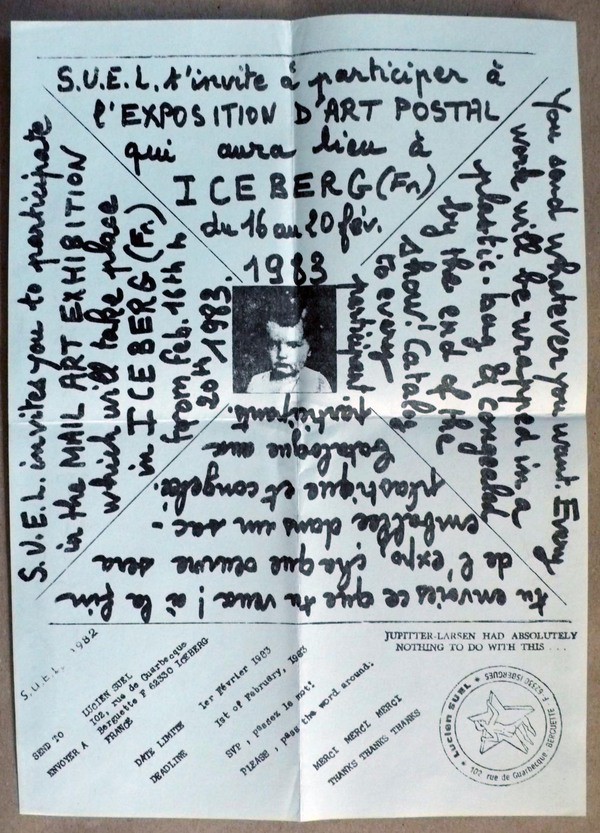 S.U.E.L. t'invite à participer à
l'EXPOSITION D'ART POSTAL
qui aura lieu à
ICEBERG (Fr)
du 16 au 20 fév.
1983
S.U.E.L. invites you to participate
in the MAIL ART EXHIBITION
which will take place
in ICEBERG (Fr)
from feb. 16th to
20th 1983.
You send whatever you want. Every
work will be wrapped in a
plastic-bag & congealed
by the end of the
show! Catalog
to every
participant
tu envoies ce que tu veux ! à la fin
de l'expo, chaque œuvre sera
emballée dans un sac-
plastique et congelée.
Catalogue aux
participants.
S.U.E.L. 1982
SEND TO
ENVOYER A
LUCIEN SUEL
102, rue de Guarbecque
Berguette F 62330 ICEBERG
FRANCE
DATE LIMITE 1er Février 1983
DEADLINE 1st of February, 1983
SVP , passez le mot!
PLEASE , pass the word around.
MERCI MERCI MERCI
THANKS THANKS THANKS
JUPITTER-LARSEN HAD ABSOLUTELY
NOTHING TO DO WITH THIS ...
Lucien SUEL
F 62330 ISBERGUES
102 rue de Guarbecque BERGUETTE